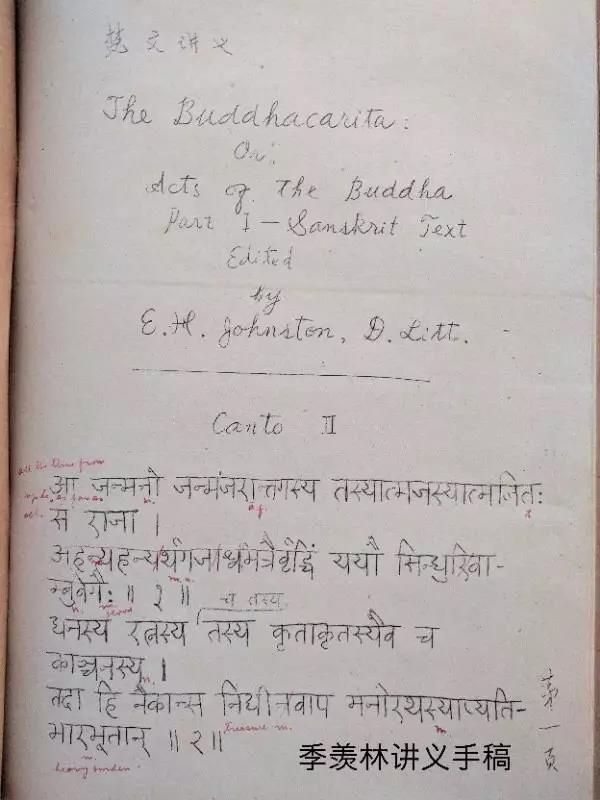 梵文讲义
The Buddhacarita:
Or,
Acts of The Buddha
Part I — Sanskrit Text
Edited
by
E. H. Johnston, D. Litt.
Canto II
all the time from
आ जन्मनो जन्मजरान्तगस्य तस्यात्मजस्यात्मजितः
m.
स राजा ।
अहन्यहन्यर्थगजाश्वमित्रैर्वृद्धिं ययौ सिन्धुरिवा-
म्बुवेगैः ॥ १ ॥
च तस्य
धनस्य रत्नस्य तस्य कृताकृतस्यैव च
काञ्चनस्य ।
तदा हि नैकान्स निधीनवाप मनोरथस्याप्यति-
treasure m.
भारभूतान् ॥ २ ॥
heavy burden
第一页
季羡林讲义手稿